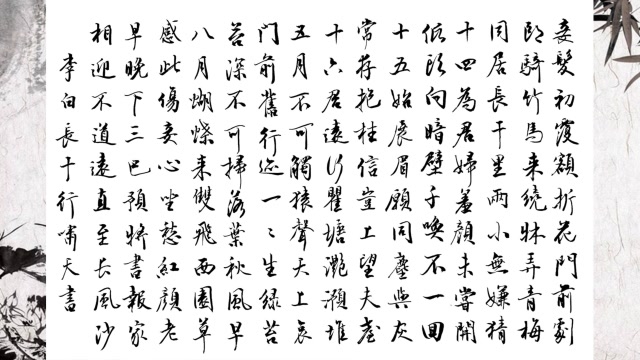 妾髮初覆額折花門前劇
郎騎竹馬来繞牀弄青梅
同居長干里兩小無嫌猜
十四為君婦羞顏未嘗開
低頭向暗壁千喚不一回
十五始展眉願同塵與灰
常存抱柱信豈上望夫臺
十六君遠行瞿塘灧澦堆
五月不可觸猿聲天上哀
門前舊行迹一〻生綠苔
苔深不可掃落葉秋風早
八月蝴蝶来雙飛西園草
感此傷妾心坐愁紅顏老
早晚下三巴預將書報家
相迎不道遠直至長風沙
李白長干行嘯天書